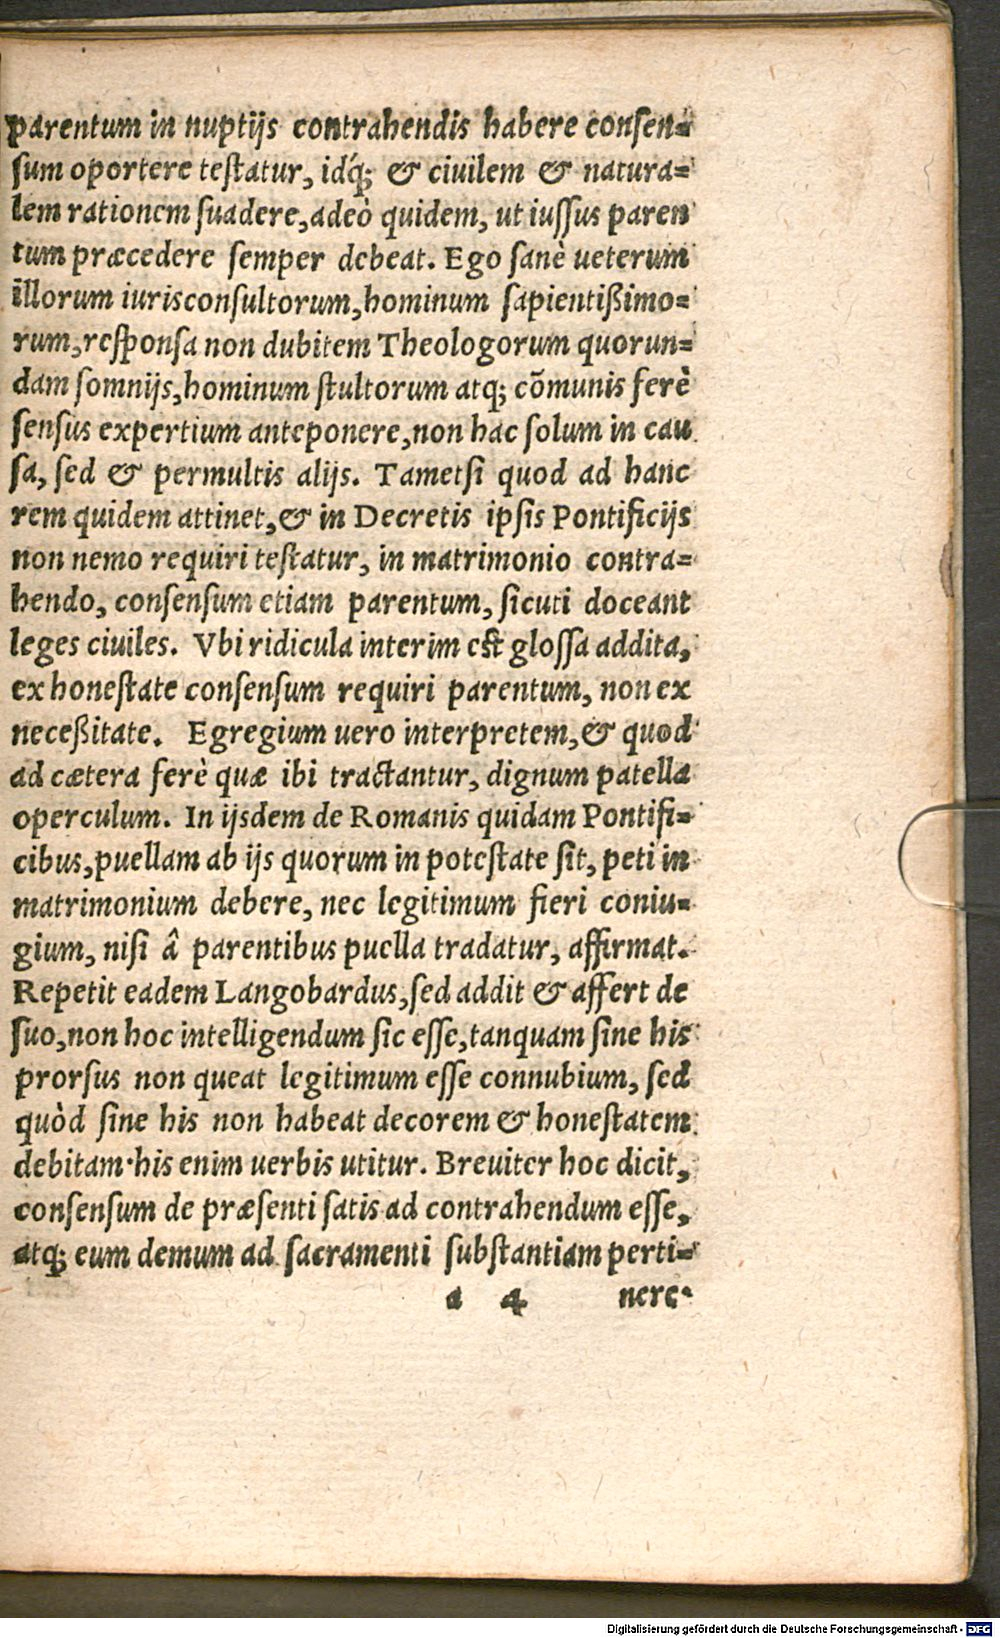 parentum in nuptijs contrahendis habere consen=
sum oportere testatur, idq́; & ciuilem & natura=
lem rationem suadere, adeò quidem, ut iussus paren
tum præcedere semper debeat. Ego sanè ueterum
illorum iurisconsultorum, hominum sapientißimo=
rum, responsa non dubitem Theologorum quorun=
dam somnijs, hominum stultorum atq; cõmunis ferè
sensus expertium anteponere, non hac solum in cau
sa, sed & permultis alijs. Tametsi quod ad hanc
rem quidem attinet, & in Decretis ipsis Pontificijs
non nemo requiri testatur, in matrimonio contra=
hendo, consensum etiam parentum, sicuti doceant
leges ciuiles. Vbi ridicula interim est glossa addita,
ex honestate consensum requiri parentum, non ex
neceßitate. Egregium uero interpretem, & quod
ad cætera ferè quæ ibi tractantur, dignum patella
operculum. In ijsdem de Romanis quidam Pontifi=
cibus, puellam ab ijs quorum in potestate sit, peti in
matrimonium debere, nec legitimum fieri coniu=
gium, nisi â parentibus puella tradatur, affirmat.
Repetit eadem Langobardus, sed addit & affert de
suo, non hoc intelligendum sic esse, tanquam sine his
prorsus non queat legitimum esse connubium, sed
quòd sine his non habeat decorem & honestatem
debitam· his enim uerbis utitur. Breuiter hoc dicit,
consensum de præsenti satis ad contrahendum esse,
atq; eum demum ad sacramenti substantiam perti=
a 4 nere.
Digitalisierung gefördert durch die Deutsche Forschungsgemeinschaft - DFG